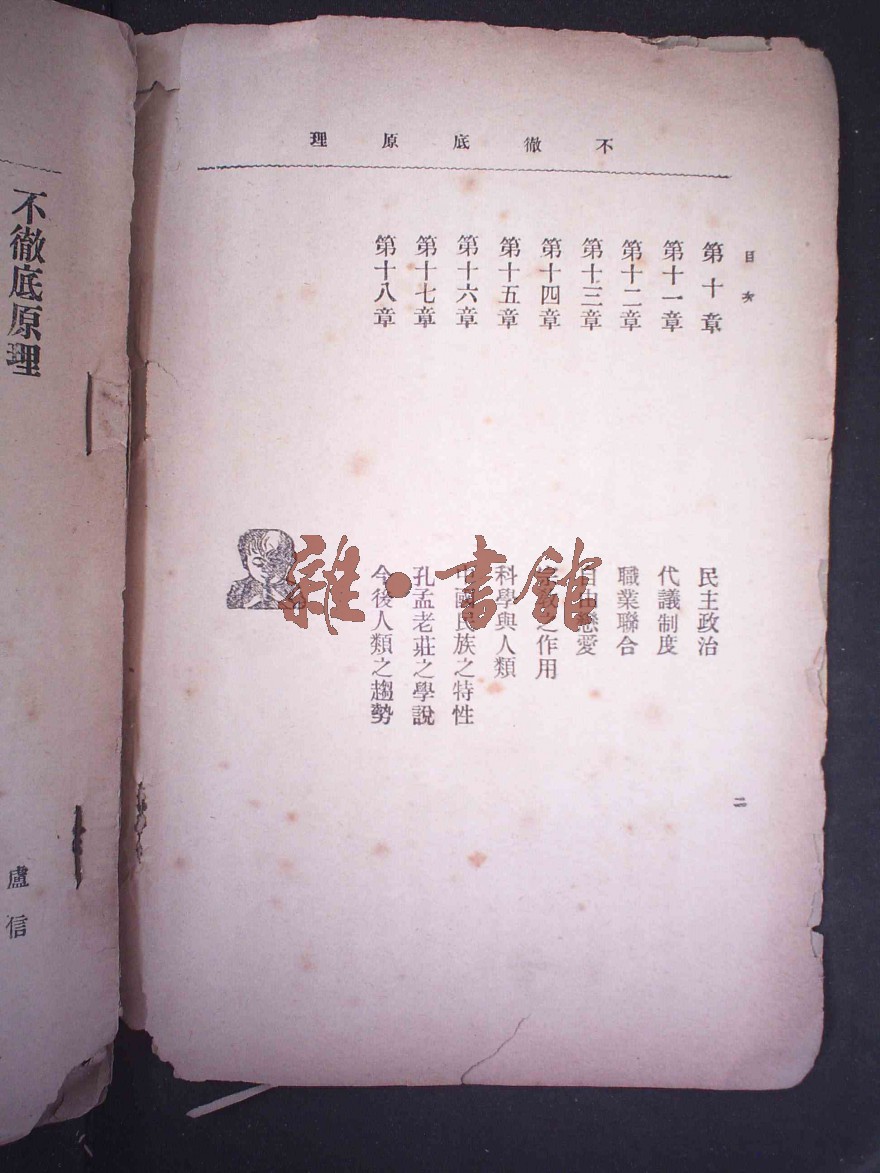 不徹底原理
目次
第十章 民主政治
第十一章 代議制度
第十二章 職業聯合
第十三章 自由戀愛
第十四章 宗教之作用
第十五章 科學與人類
第十六章 中國民族之特性
第十七章 孔孟老莊之學說
第十八章 今後人類之趨勢
二
雜·書館
不徹底原理
盧信